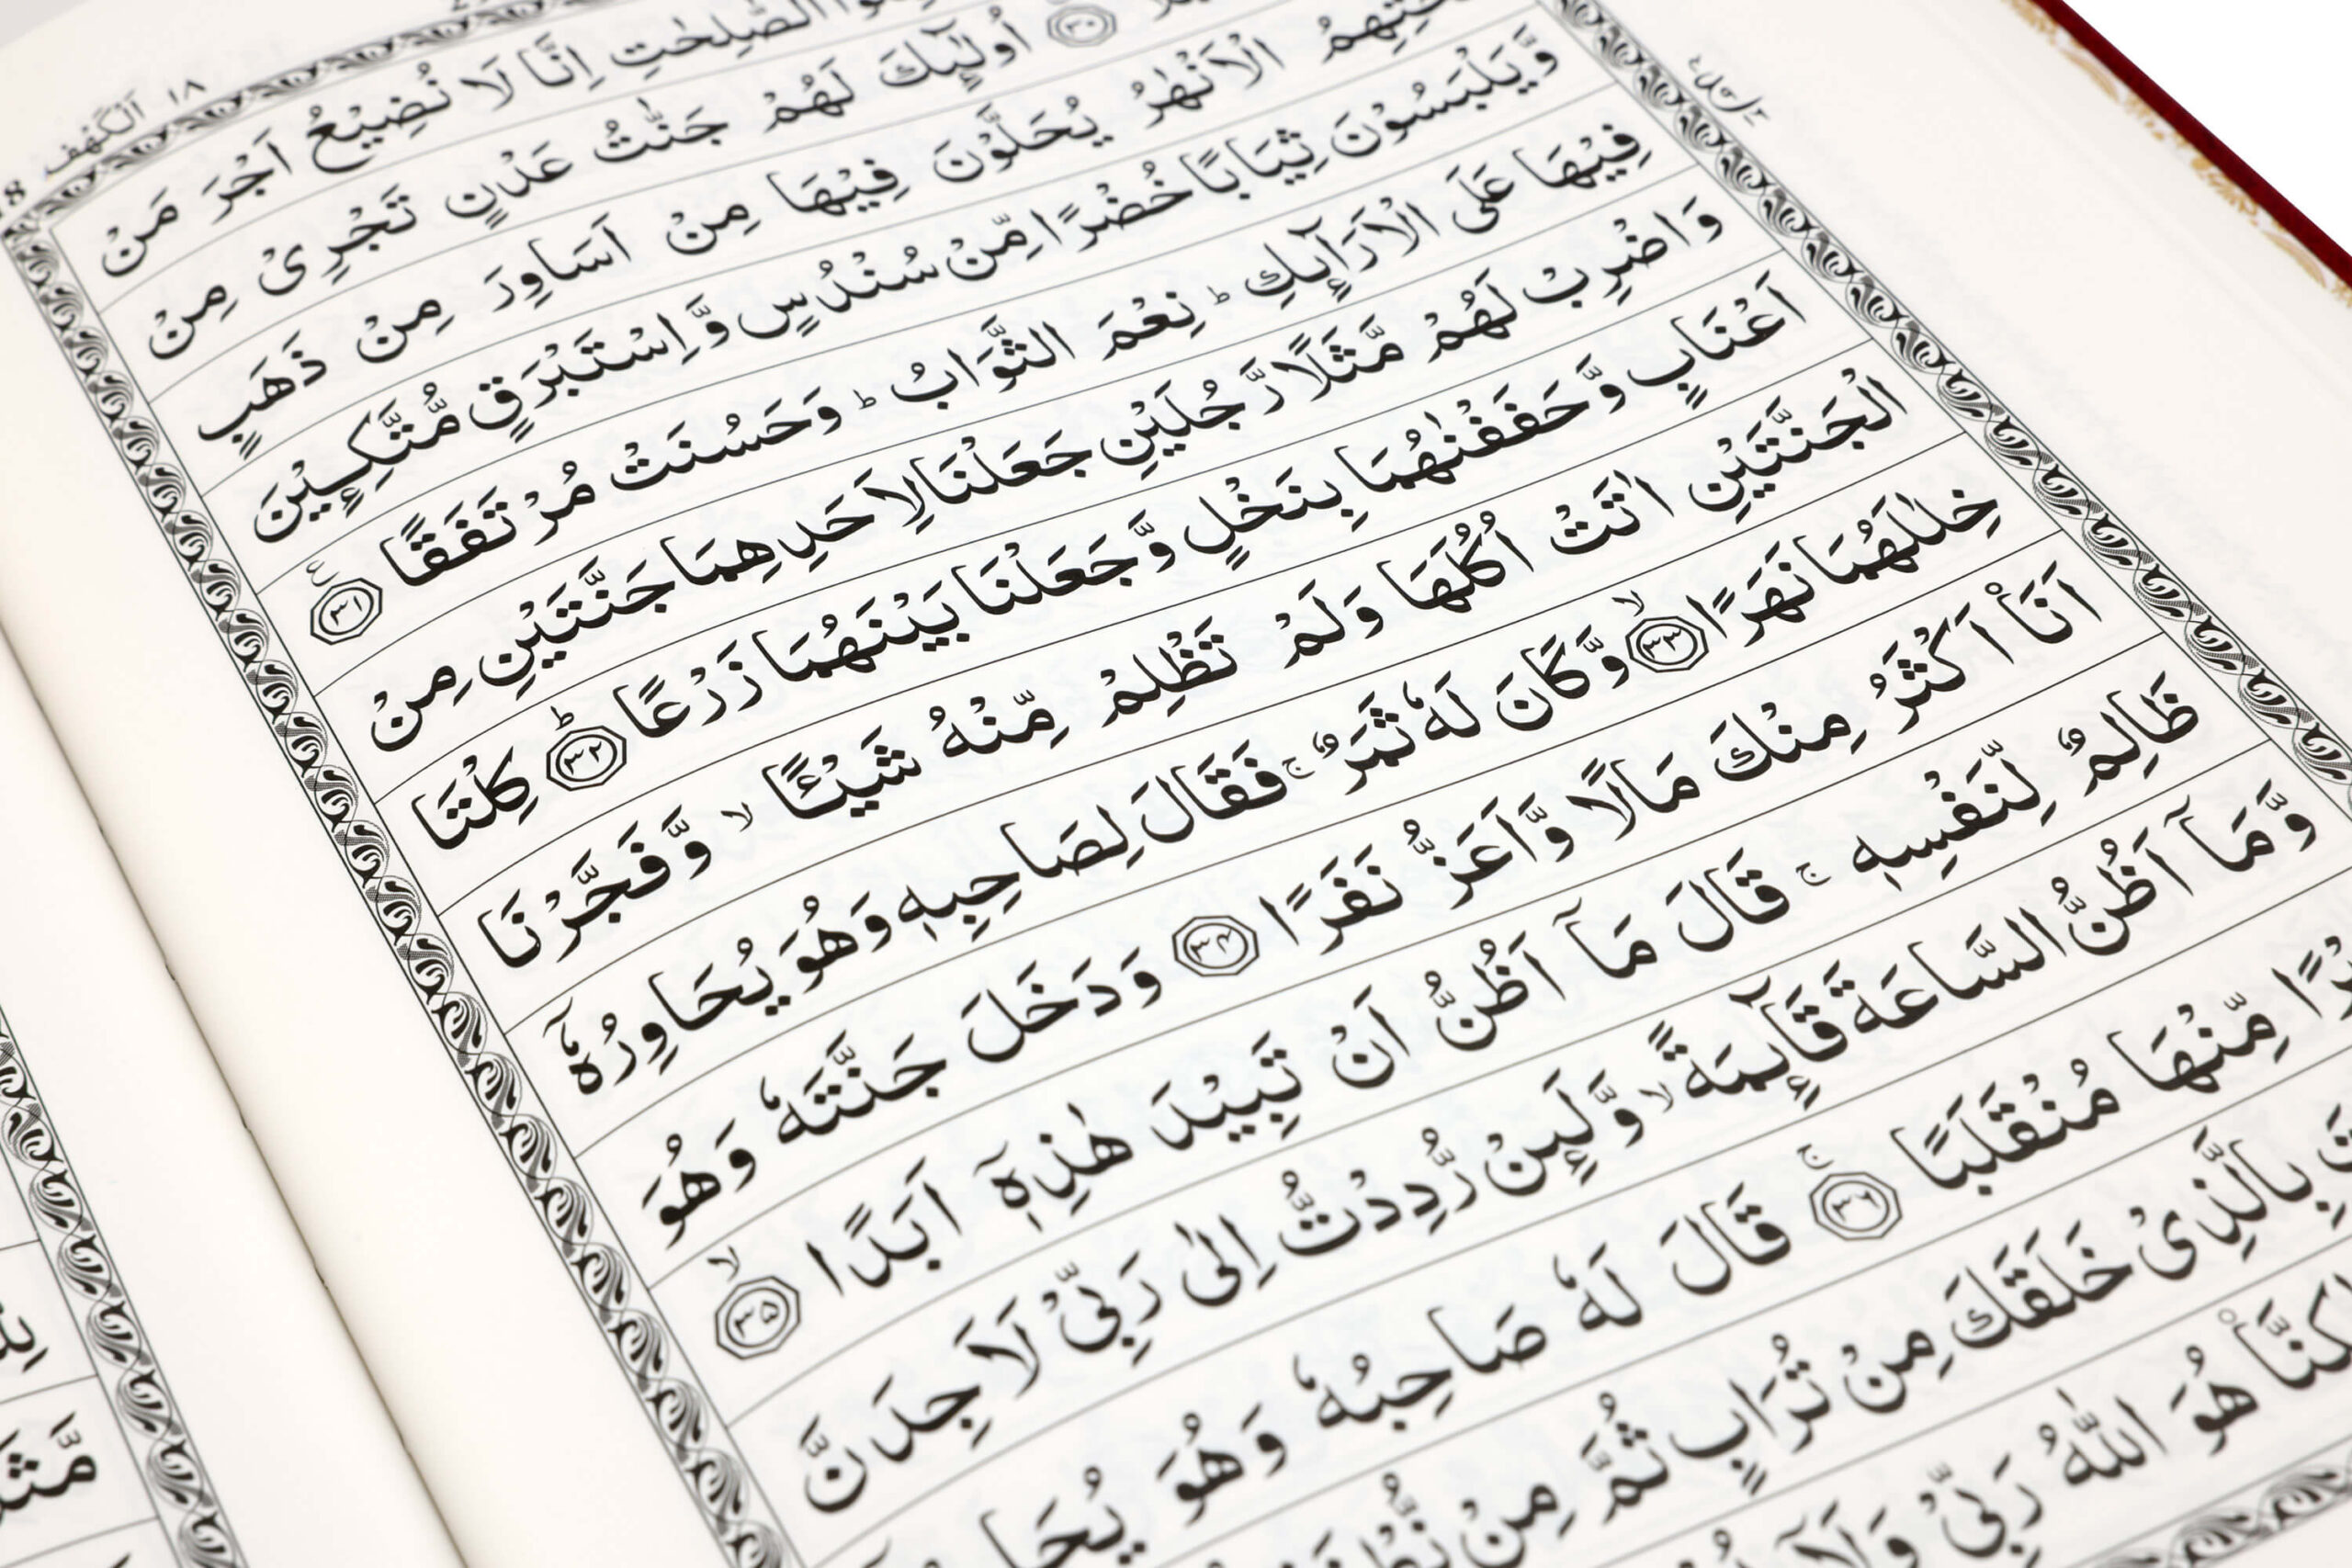 ١٨ اَلْكَهْف
الصّٰلِحٰتِ اِنَّا لَا نُضِيْعُ اَجْرَ مَنْ
﴿٣٠﴾ اُولٰٓئِكَ لَهُمْ جَنّٰتُ عَدْنٍ تَجْرِىْ مِنْ
الْاَنْهٰرُ يُحَلَّوْنَ فِيْهَا مِنْ اَسَاوِرَ مِنْ ذَهَبٍ
وَّيَلْبَسُوْنَ ثِيَابًا خُضْرًا مِّنْ سُنْدُسٍ وَّاِسْتَبْرَقٍ مُّتَّكِـِٕيْنَ
فِيْهَا عَلَى الْاَرَآئِكِ ؕ نِعْمَ الثَّوَابُ ؕ وَحَسُنَتْ مُرْتَفَقًا ﴿٣١﴾
وَاضْرِبْ لَهُمْ مَّثَلًا رَّجُلَيْنِ جَعَلْنَا لِاَحَدِهِمَا جَنَّتَيْنِ مِنْ
اَعْنَابٍ وَّحَفَفْنٰهُمَا بِنَخْلٍ وَّجَعَلْنَا بَيْنَهُمَا زَرْعًا ﴿٣٢﴾ؕ كِلْتَا
الْجَنَّتَيْنِ اٰتَتْ اُكُلَهَا وَلَمْ تَظْلِمْ مِّنْهُ شَيْـًٔا ۙ وَّفَجَّرْنَا
خِلٰلَهُمَا نَهَرًا ﴿٣٣﴾ۙ وَّكَانَ لَهٗ ثَمَرٌ ۚ فَقَالَ لِصَاحِبِهٖ وَهُوَ يُحَاوِرُهٗۤ
اَنَا۠ اَكْثَرُ مِنْكَ مَالًا وَّاَعَزُّ نَفَرًا ﴿٣٤﴾ وَدَخَلَ جَنَّتَهٗ وَهُوَ
ظَالِمٌ لِّنَفْسِهٖ ۚ قَالَ مَاۤ اَظُنُّ اَنْ تَبِيْدَ هٰذِهٖۤ اَبَدًا ﴿٣٥﴾ۙ
وَّمَاۤ اَظُنُّ السَّاعَةَ قَآئِمَةً ۙ وَّلَئِنْ رُّدِدْتُّ اِلٰى رَبِّىْ لَاَجِدَنَّ
مِّنْهَا مُنْقَلَبًا ﴿٣٦﴾ۚ قَالَ لَهٗ صَاحِبُهٗ وَهُوَ
بِالَّذِىْ خَلَقَكَ مِنْ تُرَابٍ ثُمَّ مِنْ
هُوَ اللّٰهُ رَبِّىْ